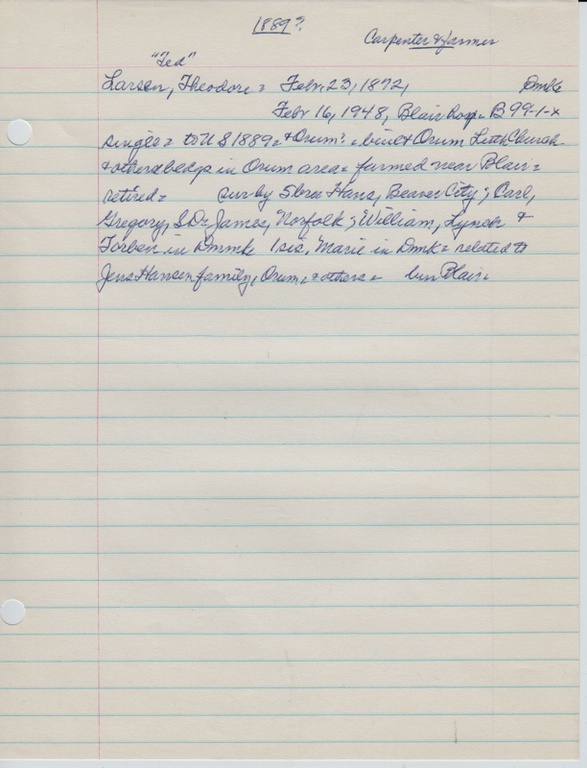 1889?
Carpenter & farmer
"Ted"
Larsen, Theodore = Febr 23, 1872, Dmk
Febr 16, 1948, Blair Hosp = B 99-1-x
single = to U S 1889 = & Orum? = built Orum Luth Church
& other bldgs in Orum area = farmed near Blair =
retired = sur by 5 bro Hans, Beaver City; Carl,
Gregory, S D = James, Norfolk; William, &
Torben in Dnmk 1 sis, Marie in Dmk = related to
Jens Hansen family, Orum, & others = bur Blair =